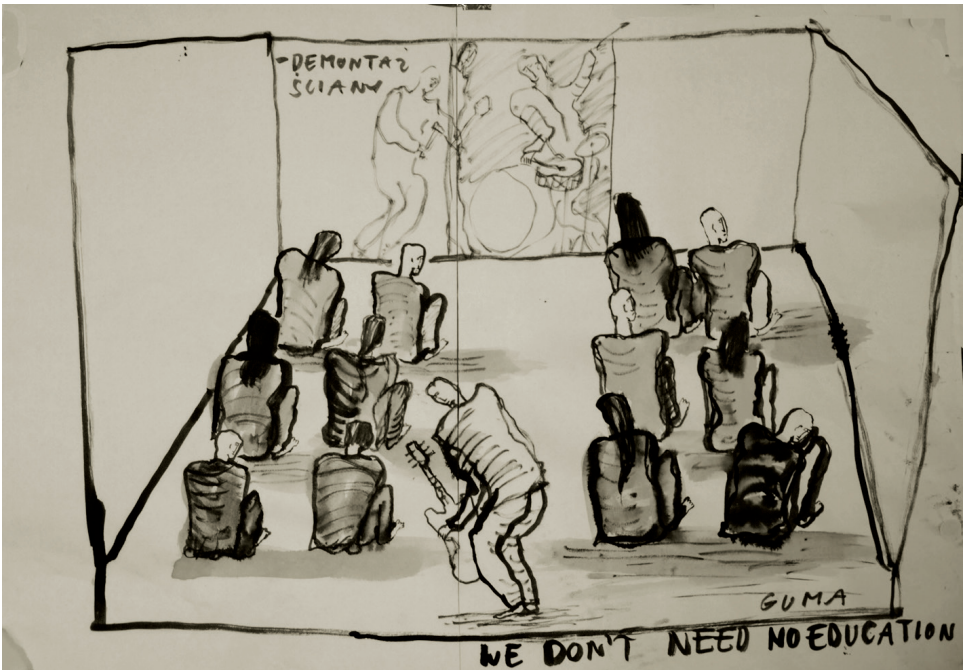 -DEMONTAŻ
ŚCIANY
GUMA
WE DON'T NEED NO EDUCATION